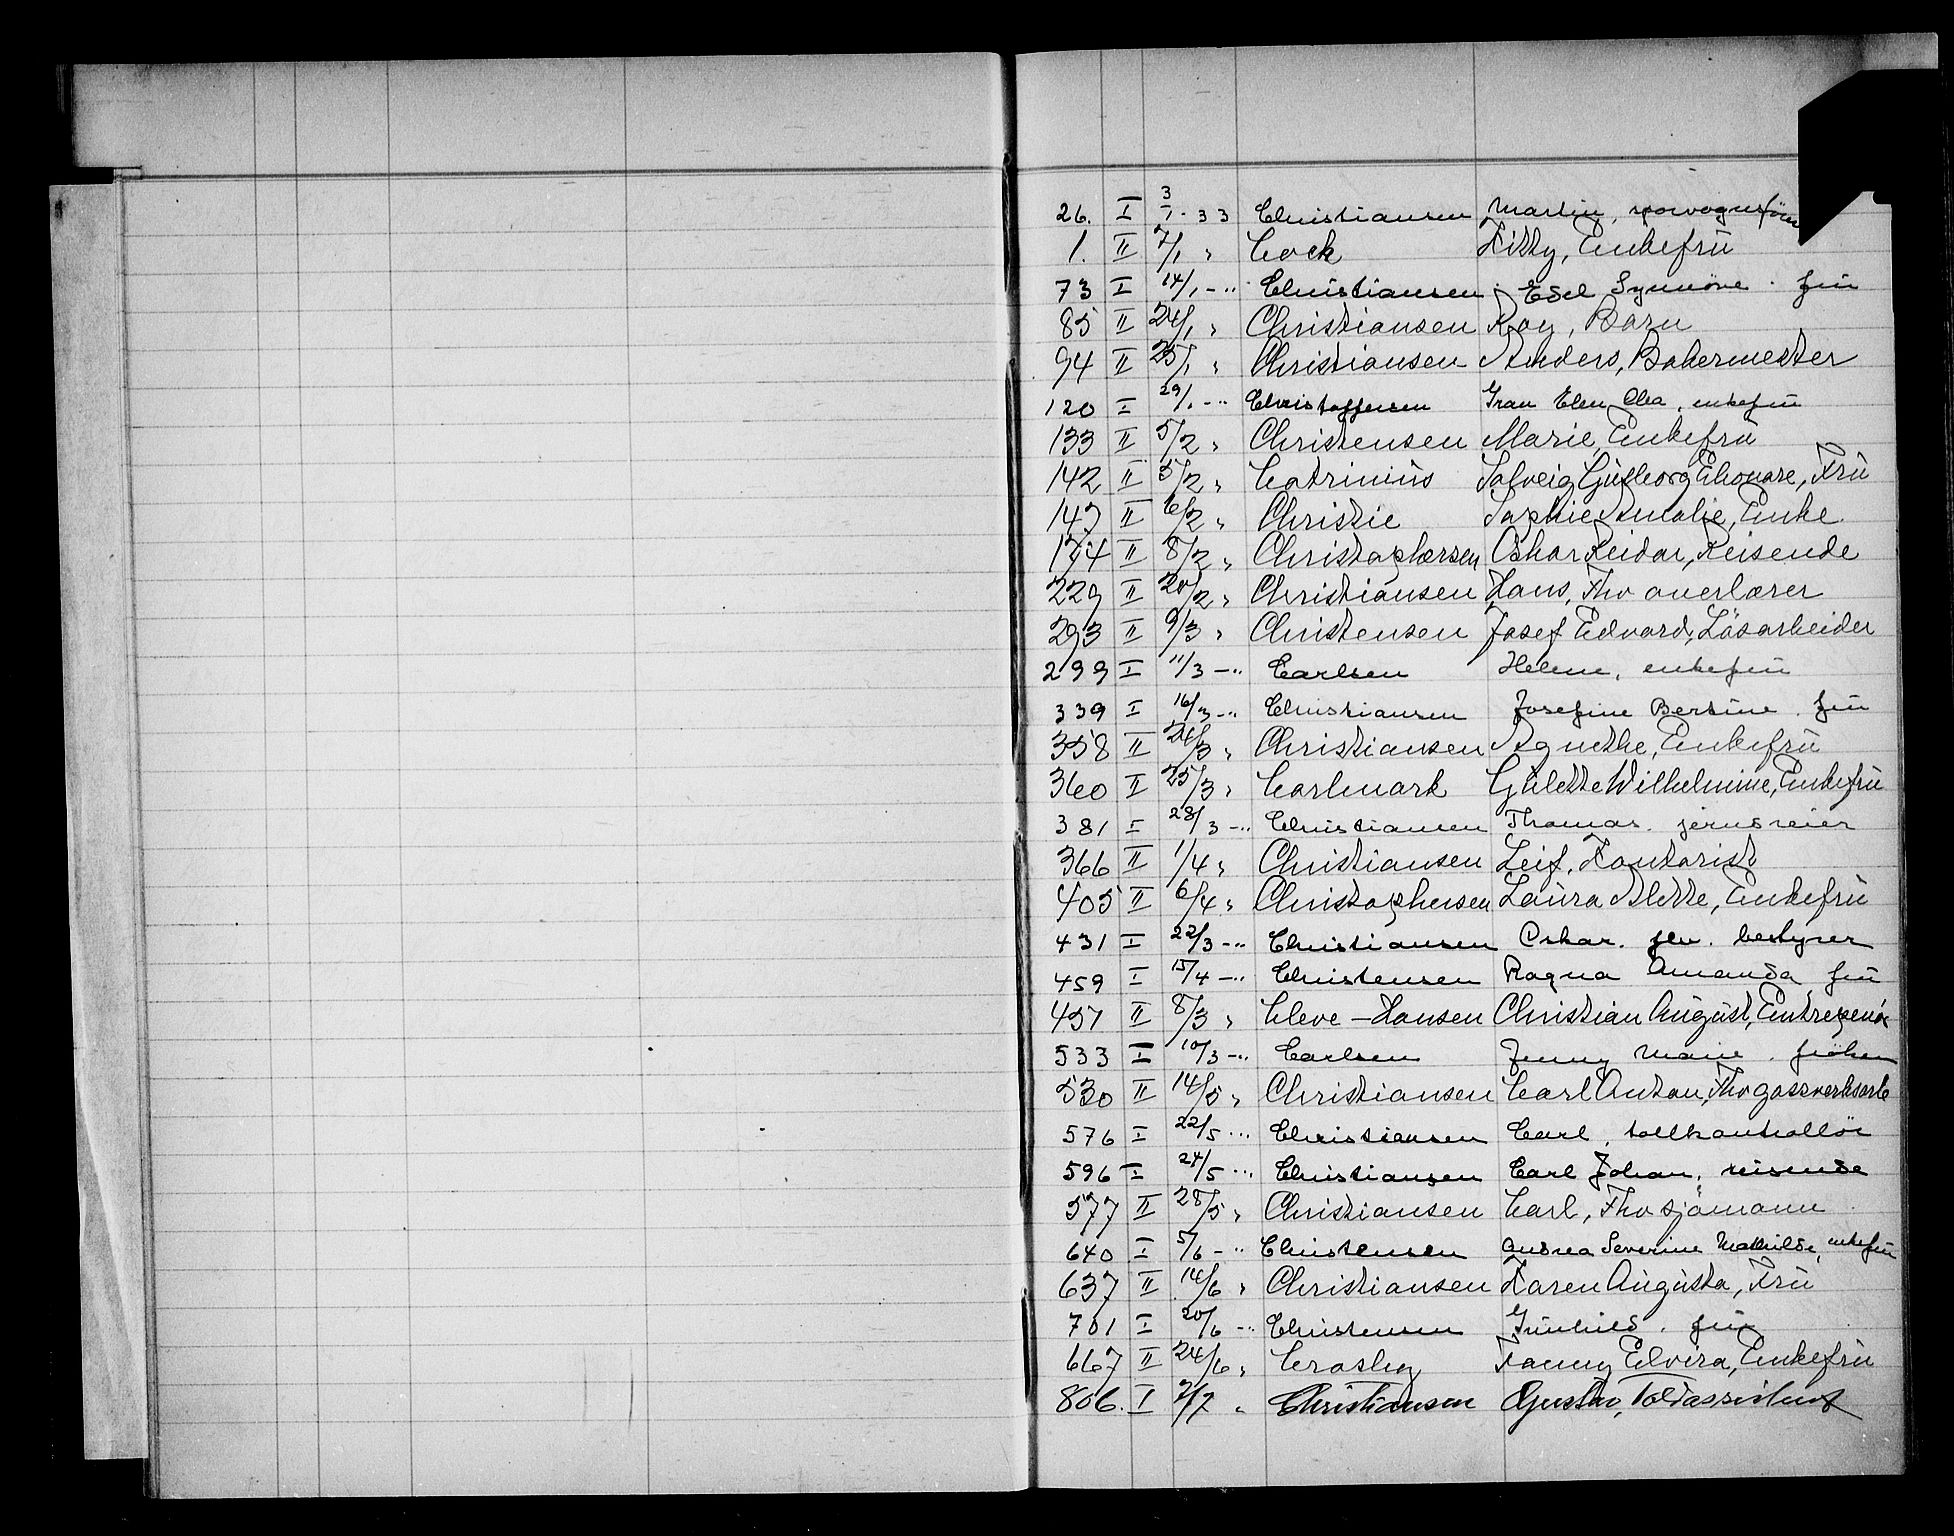 26. I 3/1-33 Christiansen Martin, sporvognsfør
1. II 7/1 " Cock Kitty, Enkefrü
73 I 14/1 - " Christiansen Edel Synnöve. frü
85 II 24/1 " Christiansen Roy, Barn
94 II 25/1 " Christiansen Anders, Bakermester
120 I 29/1 - " Christoffersen Gran Elen Olea, enkefrü
133 II 5/2 " Christensen Marie, Enkefrü
142 II 5/2 " Catrinius Solveig Gudborg Elionare, Frü
147 II 6/2 " Christie Sophie Amalie, Enke
174 II 8/2 " Christophersen Oskar Reidar, Reisende
229 II 20/2 " Christiansen Hans, Fhv overlærer
293 II 9/3 " Christensen Josef Edvard, Løsarbeider
299 I 11/3 - " Carlsen Helene, enkefrü
339 I 16/3 - " Christiansen Josefine Bertine. frü
358 II 24/3 " Christiansen Agnethe, Enkefrü
360 II 25/3 " Carlmark Wilhelmine, Enkefrü
381 I 28/3 - " Christiansen Thomas. jerndreier
366 II 1/4 " Christiansen Leif, Kontorist
405 II 6/4 " Christophersen Laura Alette, Enkefrü
431 I 22/3 - " Christiansen Oskar. fhv. bestyrer
459 I 15/4 - " Christensen Ragna Amanda, frü
457 II 8/3 " Cleve-Hansen Christian August, Entreprenör
533 I 10/3 - " Carlsen Jenny Marie. fröken
530 II 14/5 " Christiansen Carl Anton, Fhv gassverksarb
576 I 22/5 - " Christiansen Carl, tollkontrollör
596 I 24/5 - " Christiansen Carl Johan, reisende
577 II 28/5 " Christiansen Carl, Fhv sjömann
640 I 5/6 - " Christensen Andrea Severine Mathilde, enkefrü
637 II 14/6 " Christiansen Karen Augusta, Frü
701 I 20/6 - " Christensen Gunhild. frü
667 II 24/6 " Crosby Fanny Elvira, Enkefrü
806. I 7/7 " Christiansen Gustav, Toldassistent